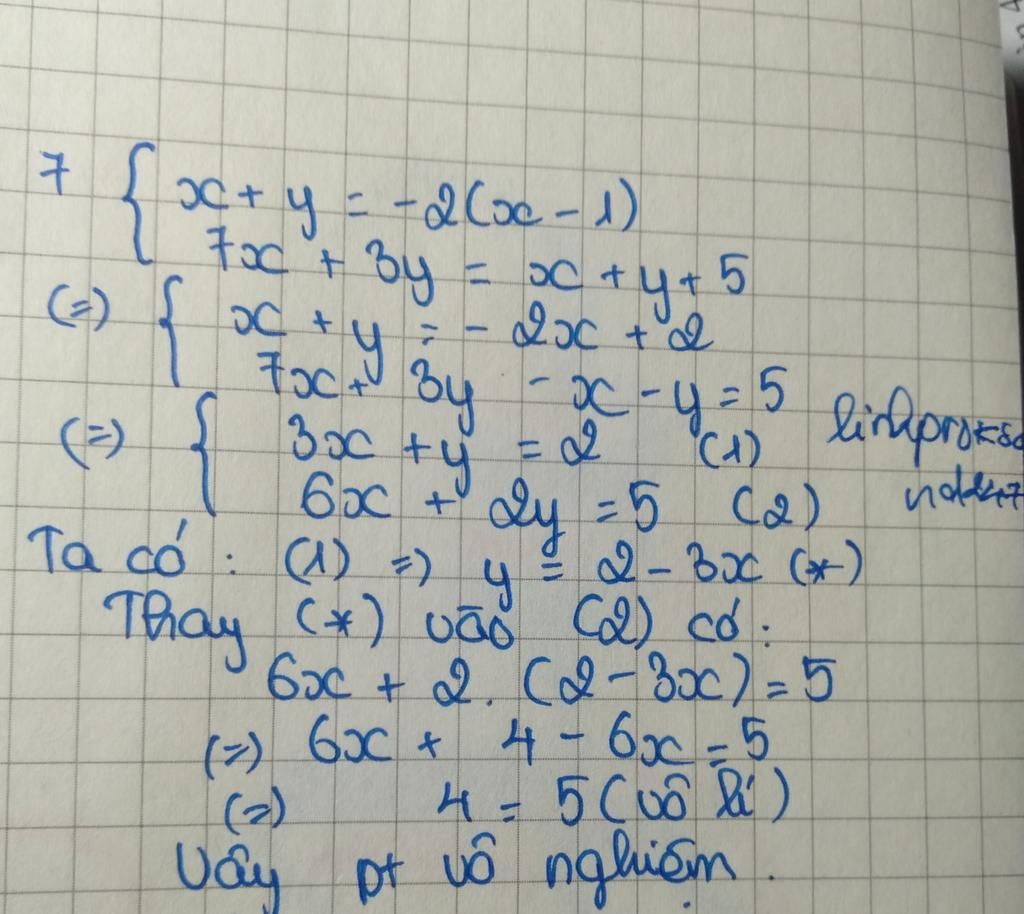 7 { x + y = -2(x - 1)
7x + 3y = x + y + 5
(=) { x + y = - 2x + 2
7x + 3y - x - y = 5
(=) { 3x + y = 2 (1)
6x + 2y = 5 (2)
Ta có : (1) =) y = 2 - 3x (*)
Thay (*) vào (2) có :
6x + 2. (2 - 3x) = 5
(=) 6x + 4 - 6x = 5
(=) 4 = 5 (vô lí)
Vậy pt vô nghiệm.